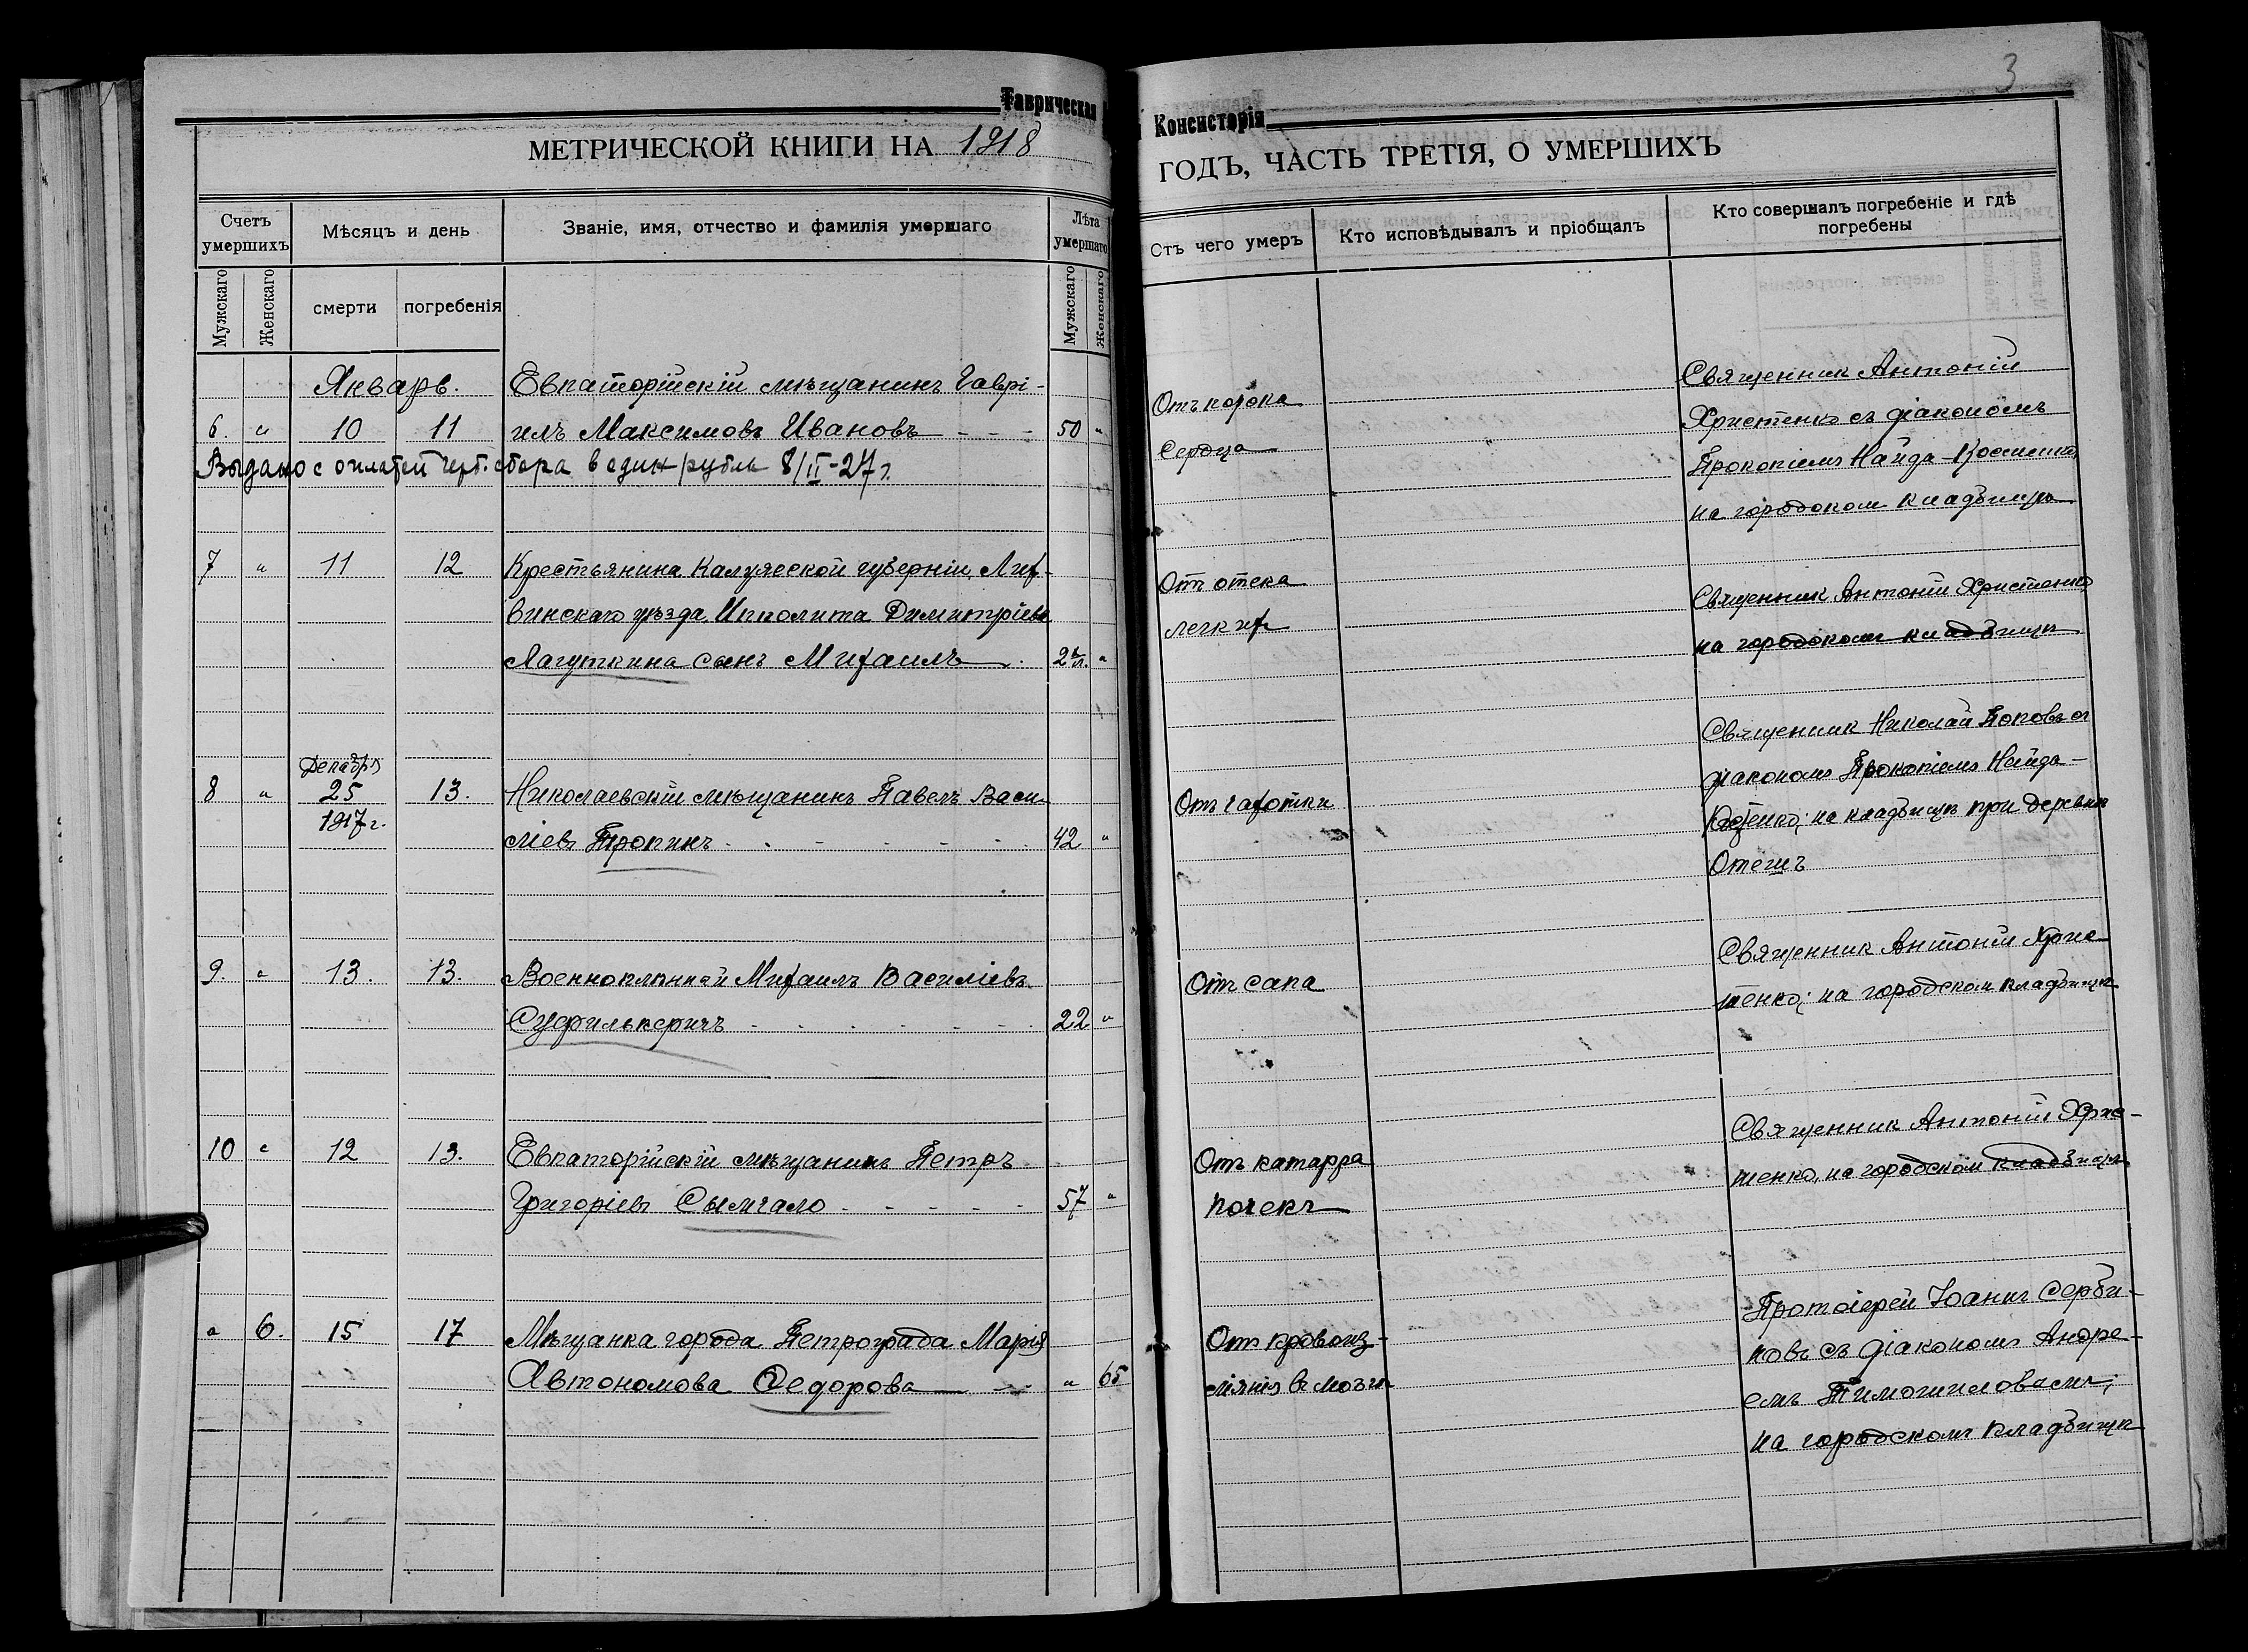 3
Таврическая Консисторія
МЕТРИЧЕСКОЙ КНИГИ НА 1918 ГОДЪ, ЧАСТЬ ТРЕТІЯ, О УМЕРШИХЪ
Счетъ умершихъ
Мѣсяцъ и день
Званіе, имя, отчество и фамилія умершаго
Лѣта умершаго
Отъ чего умеръ
Кто исповѣдывалъ и пріобщалъ
Кто совершалъ погребеніе и гдѣ погребены
Мужскаго
Женскаго
смерти
погребенія
Мужскаго
Женскаго
Январь.
6. " 10 11
Евпаторійскій мѣщанинъ Гаврі-
илъ Максимовъ Ивановъ 50 "
Отъ порока
Сердца
Священник Антоній
Христенко съ діакономъ
Прокопіемъ Найда-
на городском кладбищѣ
Выдано с оплатой герб. сбора в один рубль 8/II-27 г.
7 " 11 12
Крестьянина Калужской губерніи, Лих-
винскаго уѣзда Ипполита Димитріева
Лагуткина сынъ Михаилъ 2 "
Отъ отека
легких
Священник Антоній Христенко
на городском кладбищѣ
8 " Декабря 25 1917 г. 13.
Николаевскій мѣщанинъ Павелъ Васи-
ліевъ Тропинъ 42 "
Отъ чахотки
Священник Николай Поповъ съ
діаконом Прокопіемъ Найда-
на кладбищѣ при деревнѣ
Отешъ
9. " 13. 13.
Военноплѣнный Михаилъ Василіевъ
22 "
Отъ сапа
Священник Антоній Хрис-
тенко; на городском кладбищѣ
10 " 12 13.
Евпаторійскій мѣщанинъ Петръ
Григоріевъ Сымчало 57 "
Отъ катарра
почекъ
Священник Антоній Хрис-
тенко, на городском кладбищѣ
" 6. 15 17
Мѣщанка города Петрограда Марія
Автономова Ѳедорова " 65
Отъ кровоиз-
ліянія въ мозгъ
Протоіерей Іоаннъ Серби-
новъ съ діаконом Андре-
емъ
на городскомъ кладбищѣ